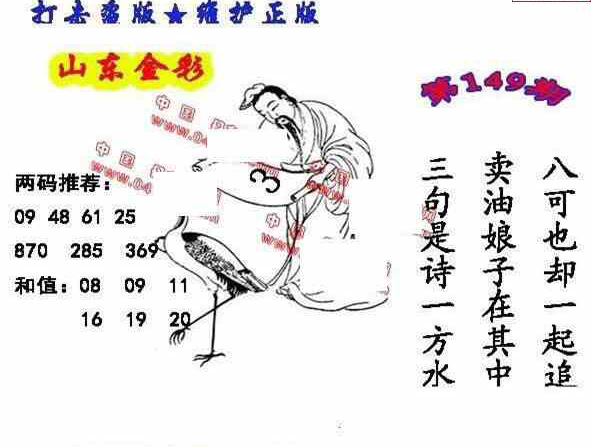 打击盗版★维护正版
山东金彩
第149期
中国
www.04
中国
www.04
中国
www
两码推荐：
09 48 61 25
870 285 369
和值：08 09 11
16 19 20
3
八可也却一起追
卖油娘子在其中
三句是诗一方水